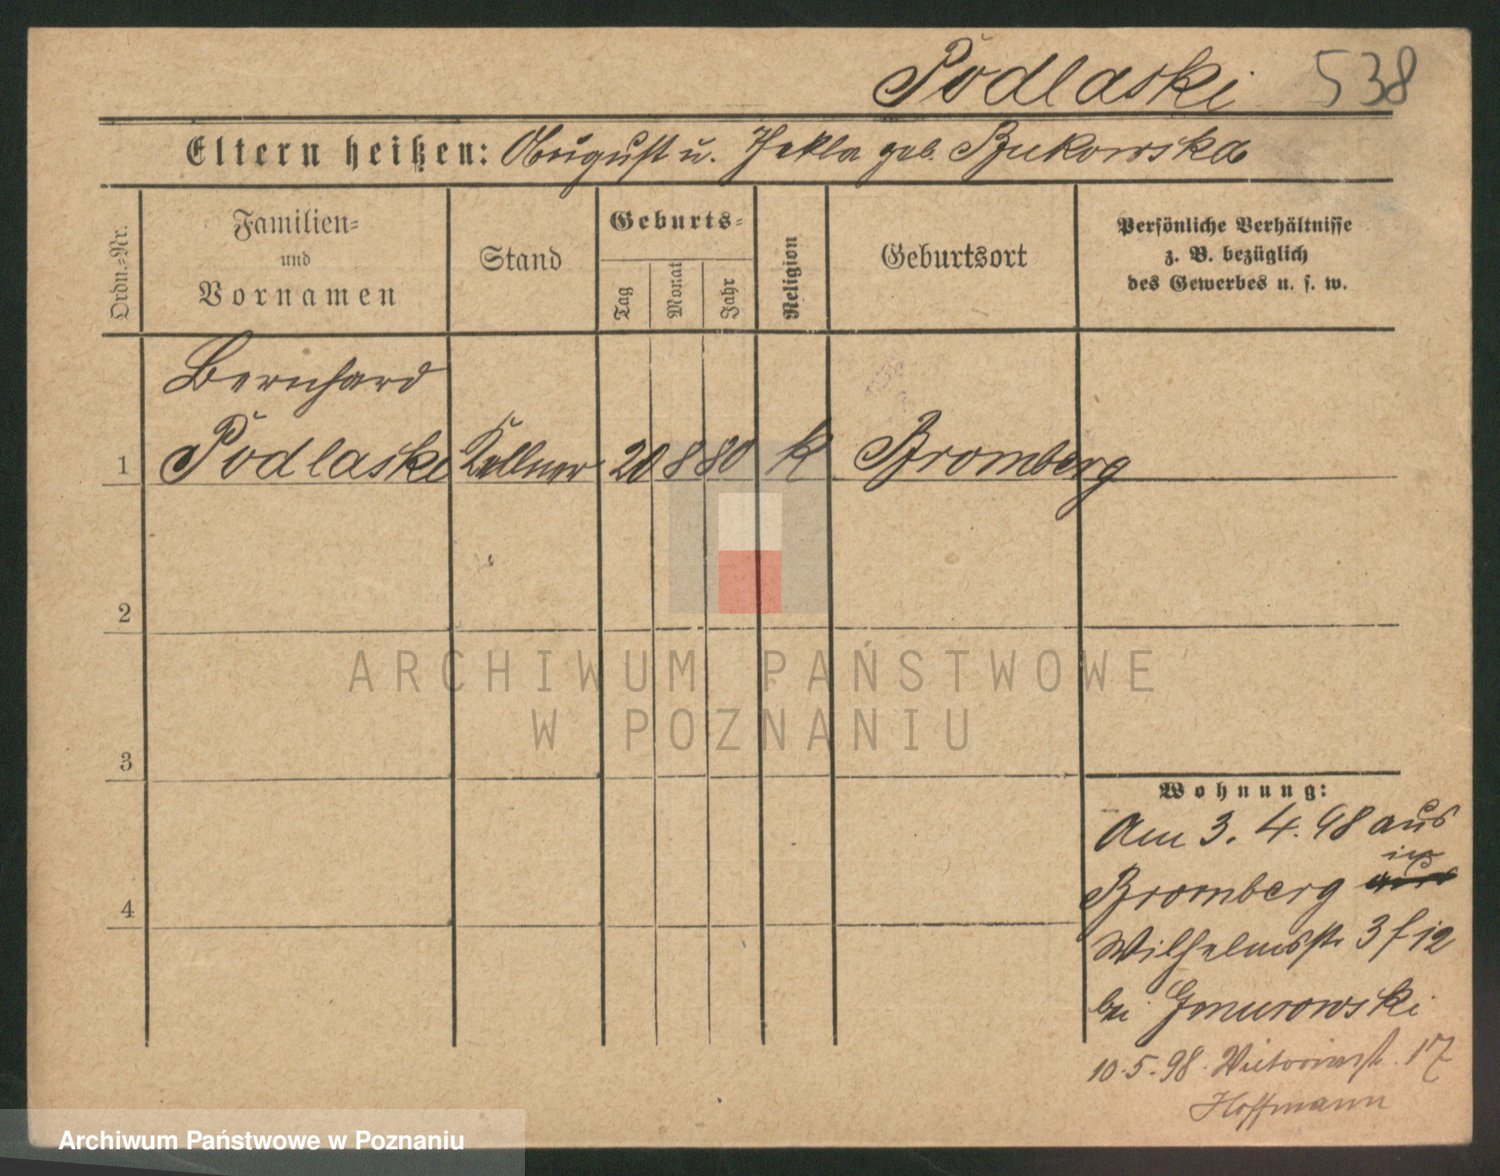 Podlaski 538
Eltern heißen: August u. Thekla geb. Bukowska
Ordn.-Nr.
Familien-
und
Vornamen
Stand
Geburts-
Tag
Monat
Jahr
Religion
Geburtsort
Persönliche Verhältnisse
z. B. bezüglich
des Gewerbes u. s. w.
Bernhard
1 Podlaski Kellner 20 8 80 K Bromberg
2
ARCHIWUM PAŃSTWOWE
W POZNANIU
3
Wohnung:
Am 3. 4. 98 aus
in
Bromberg
4
Wilhelmsstr. 3
bei Gmurowski
10.5.98. Victoriastr. 17
Hoffmann
Archiwum Państwowe w Poznaniu